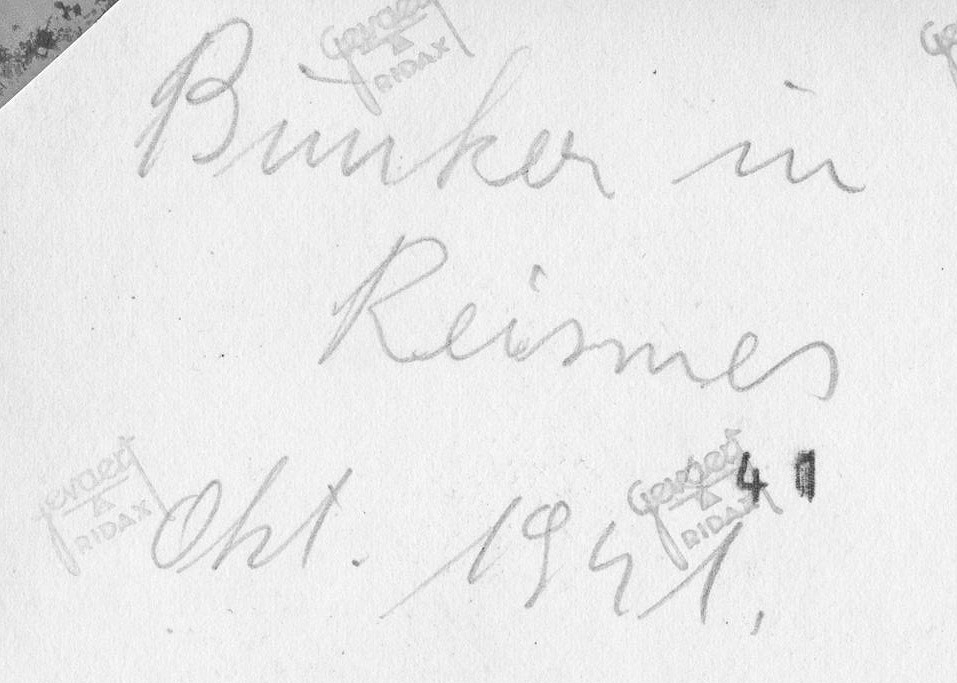 Gevaert
RIDAX
Bunker in
Reismes
Gevaert
RIDAX
Gevaert
RIDAX
4
Okt. 1941.